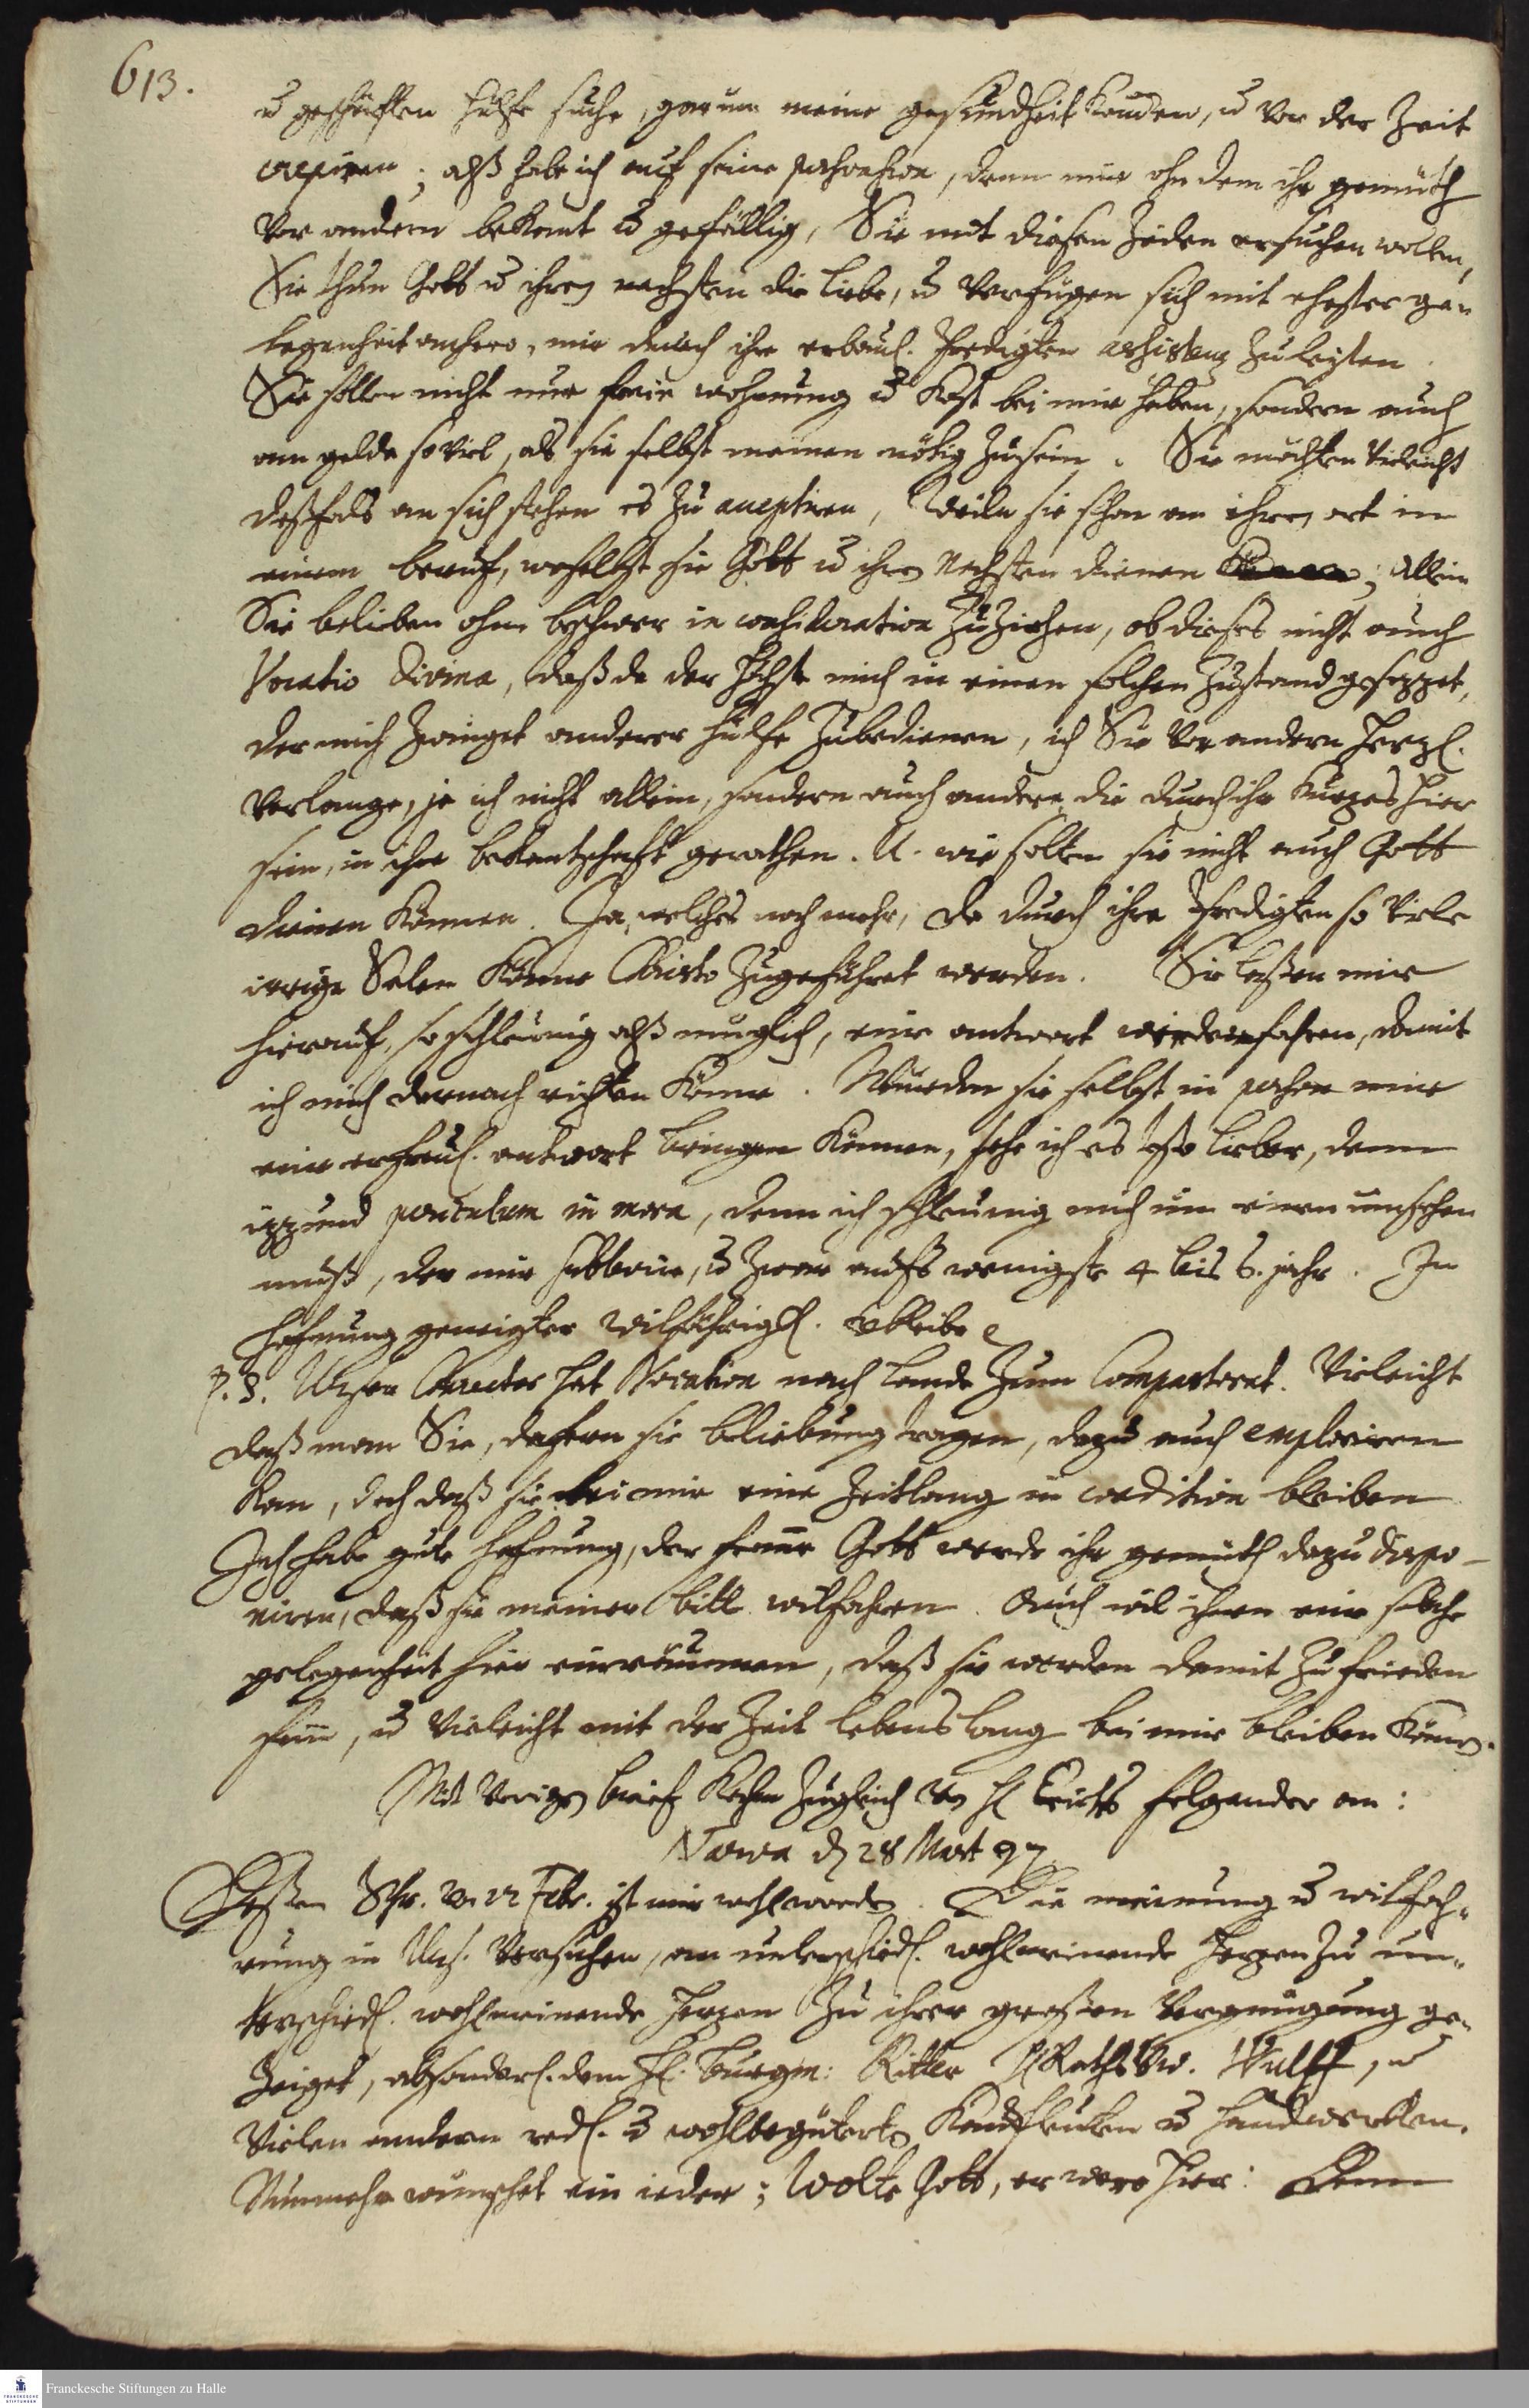 613.
u geschäfften hülfe suche, gar um meine gesundheit komen, u vor der Zeit
crepiren; alß habe ich auf seine persvasion, denn mir ohn dem ihr gemüth
vor andern bekant u gefällig, Sie mit diesen Zeilen ersuchen wollen,
Sie thun Gott u ihren nechsten die liebe, u verfügen sich mit ehester ge-
legenheit anhero, mir durch ihre erbaul. Predigten assistenz zu leisten.
Sie sollen nicht nur freie wohnung u Kost bei mir haben, sondern auch
an gelde so viel, als sie selbst meinen nötig zu sein. Sie möchten vieleicht
deßfals an sich stehen es zu acceptiren, Weiln sie schon an ihren ort in
einem beruf, woselbst sie Gott u ihren Nechsten dienen; Allein
Sie belieben ohne beschwer in consideration zu ziehen, ob dieses nicht auch
Vocatio Divina, daß da der Höchste mich in einen solchen Zustand gesezzet,
der mich zwinget anderer hülfe zu bedienen, ich Sie vor andern herzl.
verlange, ja ich nicht allein, sondern auch andere, die durch ihr kurzes hier
sein, in ihre bekantschafft gerathen. U. wie solten sie nicht auch Gott
dienen können. Ja, welches noch mehr, da durch ihre Predigten so viele
irrige Selen können Christo zugeführet werden. Sie laßen mir
hierauf, so schleunig alß müglich, eine antwort wiederfahren, damit
ich mich darnach richten könne. Wurden sie selbst in person mir
eine erfreul. antwort bringen können, sehe ich es desto lieber, denn
izzund periculum in mora, denn ich schleunig mich um einen umsehen
muß, der mir sublevire, u zwar aufs wenigste 4 bis 6. jahr. In
Hofnung geneigter wilfährigk. verbleibe
P. S. Unser Conrector hat Vocation nach lande zum Compastorat. Vieleicht
daß man Sie, dafern sie beliebung tragen, dazu auch employiren
kan, doch daß sie bei mir eine Zeitlang in condition bleiben
Ich habe gute hofnung, der fromme Gott werde ihr gemüth dazu dispo-
niren, daß sie meiner bitt wilfahren. Auch wil ihnen eine solche
gelegenheit hier einräumen, daß sie werden damit zu frieden
sein, u vieleicht mit der Zeit lebenslang bei mir bleiben können.
Mit vorigen brief kahm zugleich von H folgender an:
Narva d 28 Mart 97
Deßen Schr. v. 12 Febr. ist mir wohl worden. Die meinung u wilfah-
rung in Uns. Ersuchen, an unterschiedl. wohlmeinende Herzen zu un-
terschiedl. wohlmeinende Herzen zu ihrer großen Vergnügung ge-
zeiget, absonderl. dem H. Burgm: Ritter H Rathsvw. Wulff, u
vielen andern redl. u wohlbegüterten Kaufleuten u handwerkern.
Nunmehr wünschet ein ieder; Wolte Gott, er wäre hier: Denn
Franckesche Stiftungen zu Halle